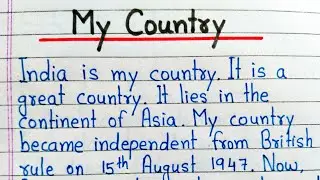 My Country
India is my country. It is a
great country. It lies in the
continent of Asia. My country
became independent from British
rule on 15th August 1947. Now,